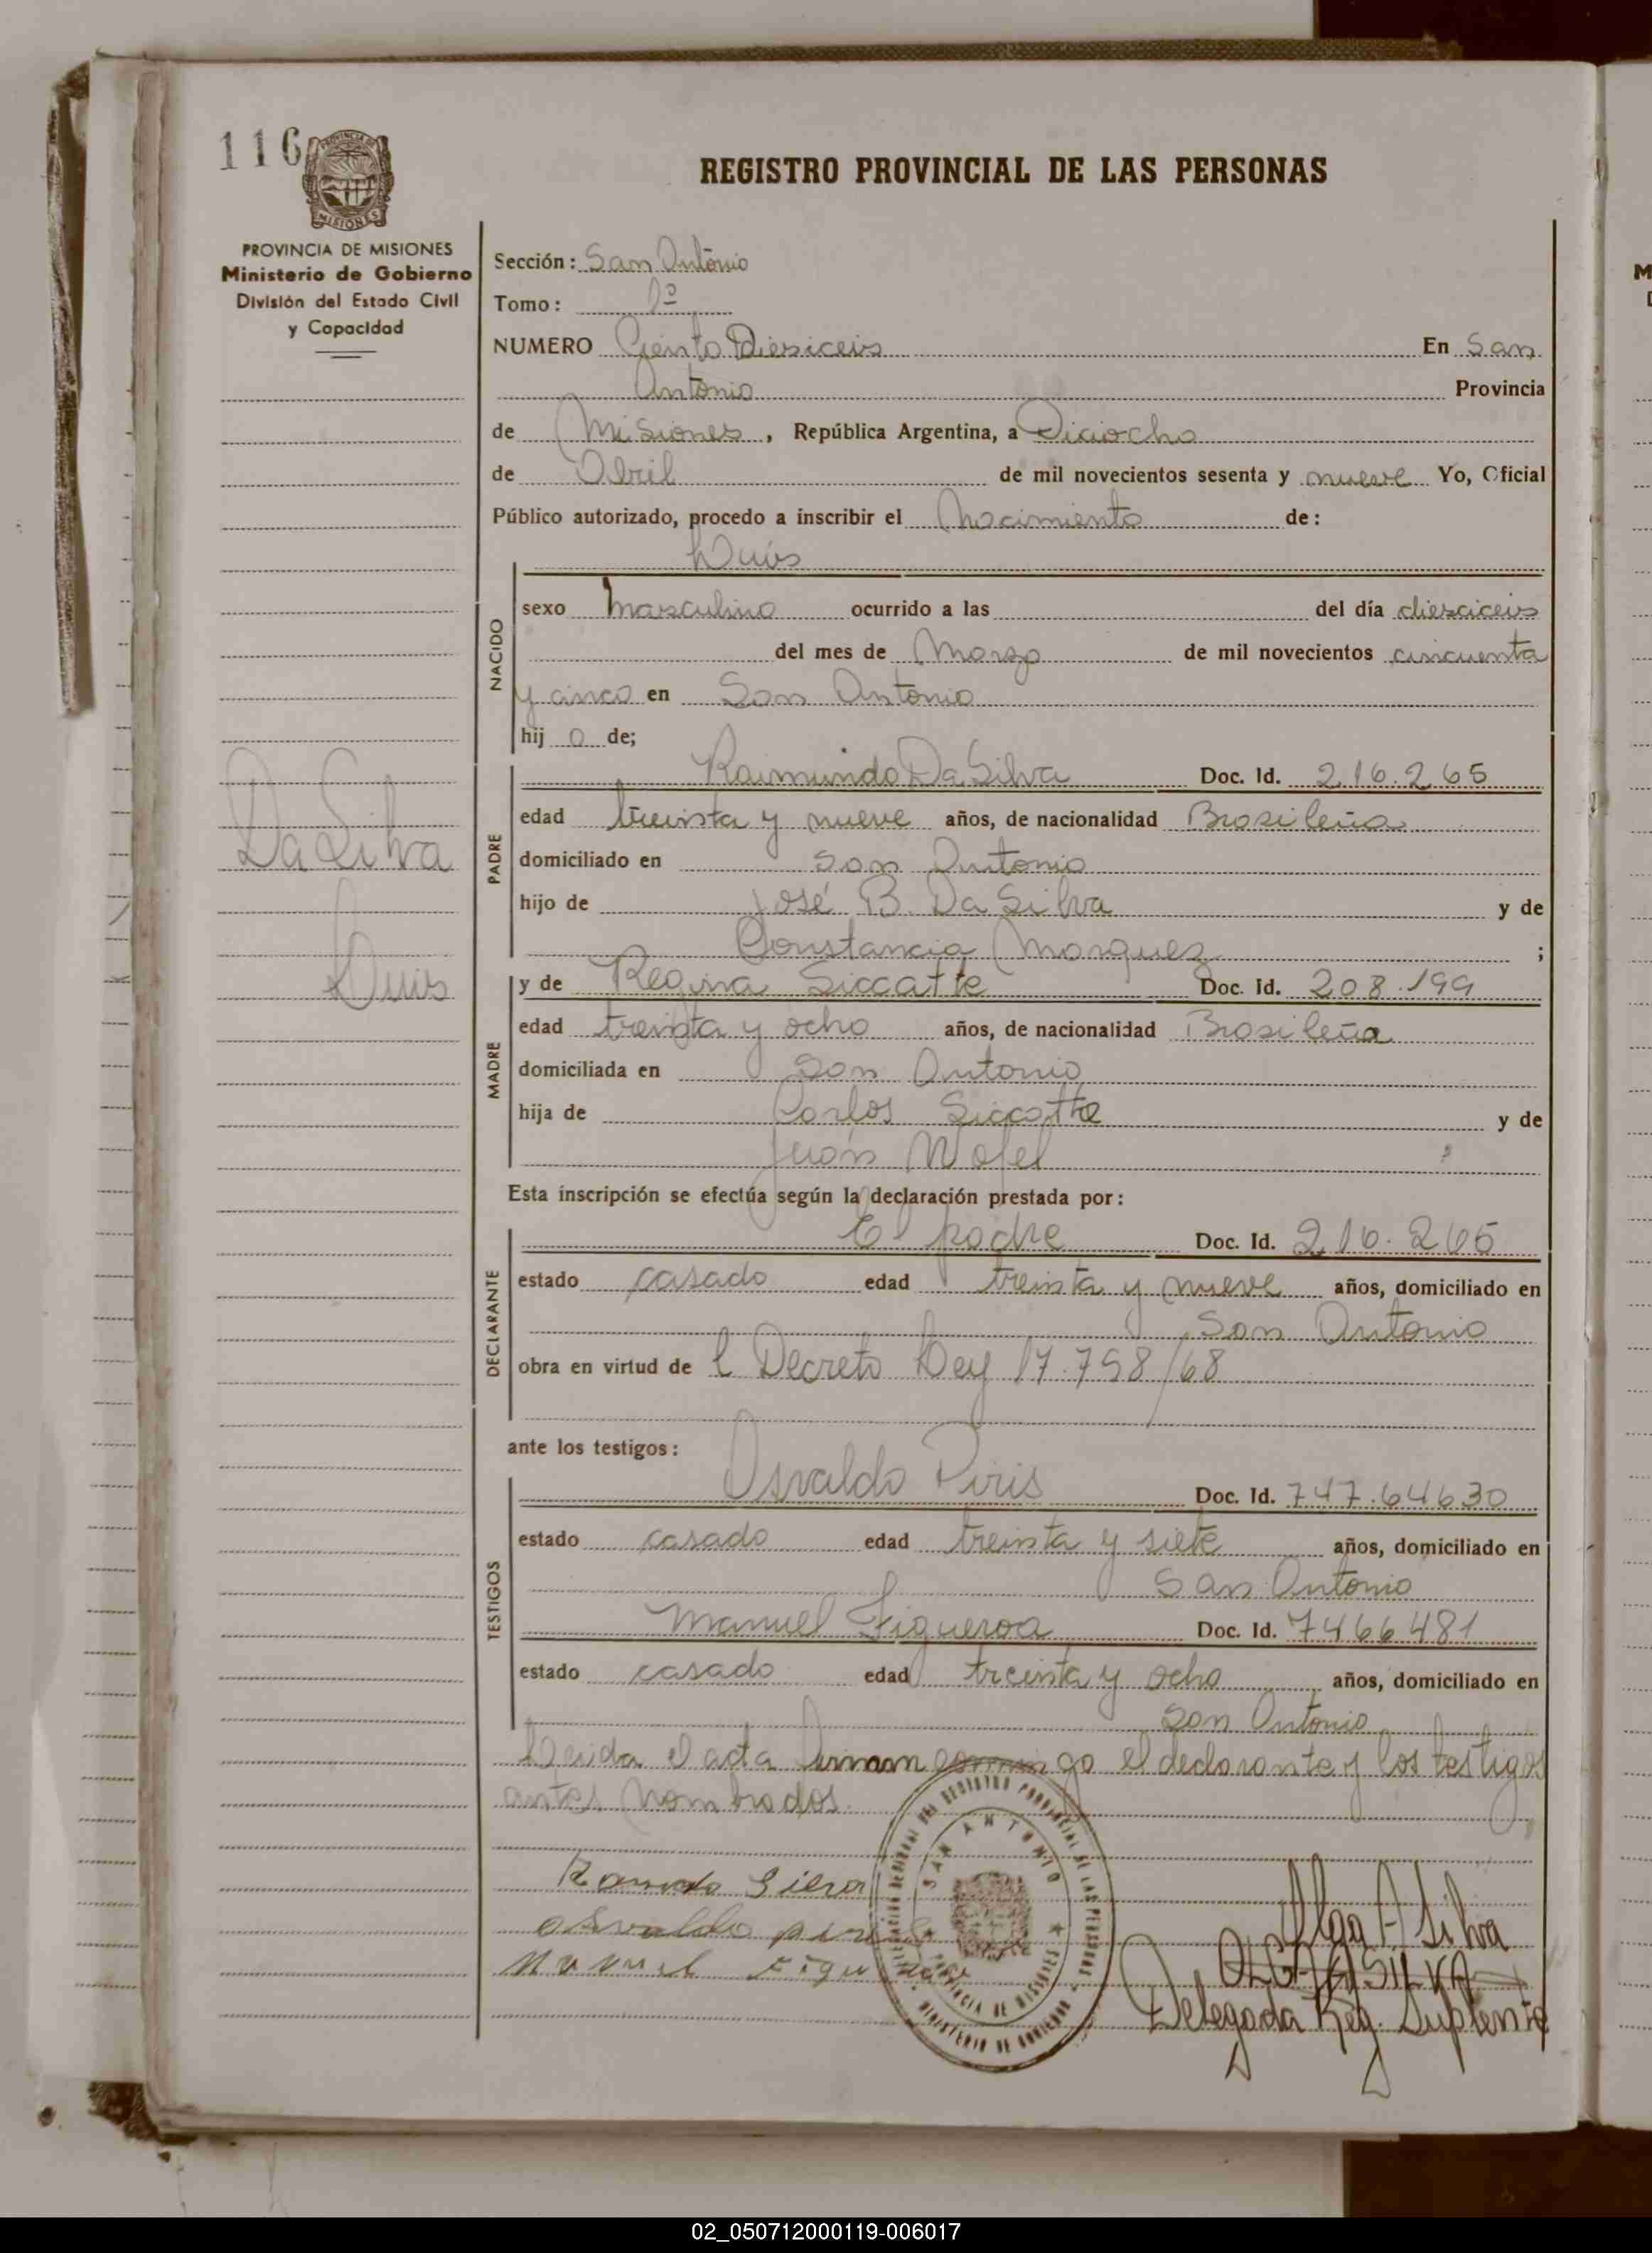 116
REGISTRO PROVINCIAL DE LAS PERSONAS
PROVINCIA DE MISIONES
Ministerio de Gobierno
División del Estado Civil
y Capacidad
Sección: San Antonio
Tomo: 1º
NUMERO Ciento Diesiceis En San
Antonio Provincia
de Misiones, República Argentina, a Diciocho
de Abril de mil novecientos sesenta y nueve Yo, Oficial
Público autorizado, procedo a inscribir el Nacimiento de:
Luis
NACIDO
sexo Masculino ocurrido a las del día diesciceis
del mes de Marzo de mil novecientos cincuenta
y cinco en San Antonio
hij o de;
Da Silva
Luis
PADRE
Raimundo Da Silva Doc. Id. 216.265
edad treinta y nueve años, de nacionalidad Brasileña
domiciliado en San Antonio
hijo de José B. Da Silva y de
Constancia Marquez ;
MADRE
y de Regina Siccatte Doc. Id. 208.199
edad treinta y ocho años, de nacionalidad Brasileña
domiciliada en San Antonio
hija de Carlos Siccatte y de
Juan
Esta inscripción se efectúa según la declaración prestada por:
DECLARANTE
El padre Doc. Id. 216.265
estado casado edad treinta y nueve años, domiciliado en
San Antonio
obra en virtud de l Decreto Ley 17.798/68
ante los testigos:
TESTIGOS
Osvaldo Piris Doc. Id. 747.64630
estado casado edad treinta y siete años, domiciliado en
San Antonio
Manuel Figueroa Doc. Id. 7466481
estado casado edad treinta y ocho años, domiciliado en
San Antonio
Leida el acta firman conmigo el declarante y los testigos
antes nombrados.
osvaldo piris
Manuel Figueroa
SAN ANTONIO
PROVINCIA DE MISIONES
MINISTERIO DE GOBIERNO
Olga A Silva
OLGA A SILVA
Delegada Reg. Suplente
02_050712000119-006017